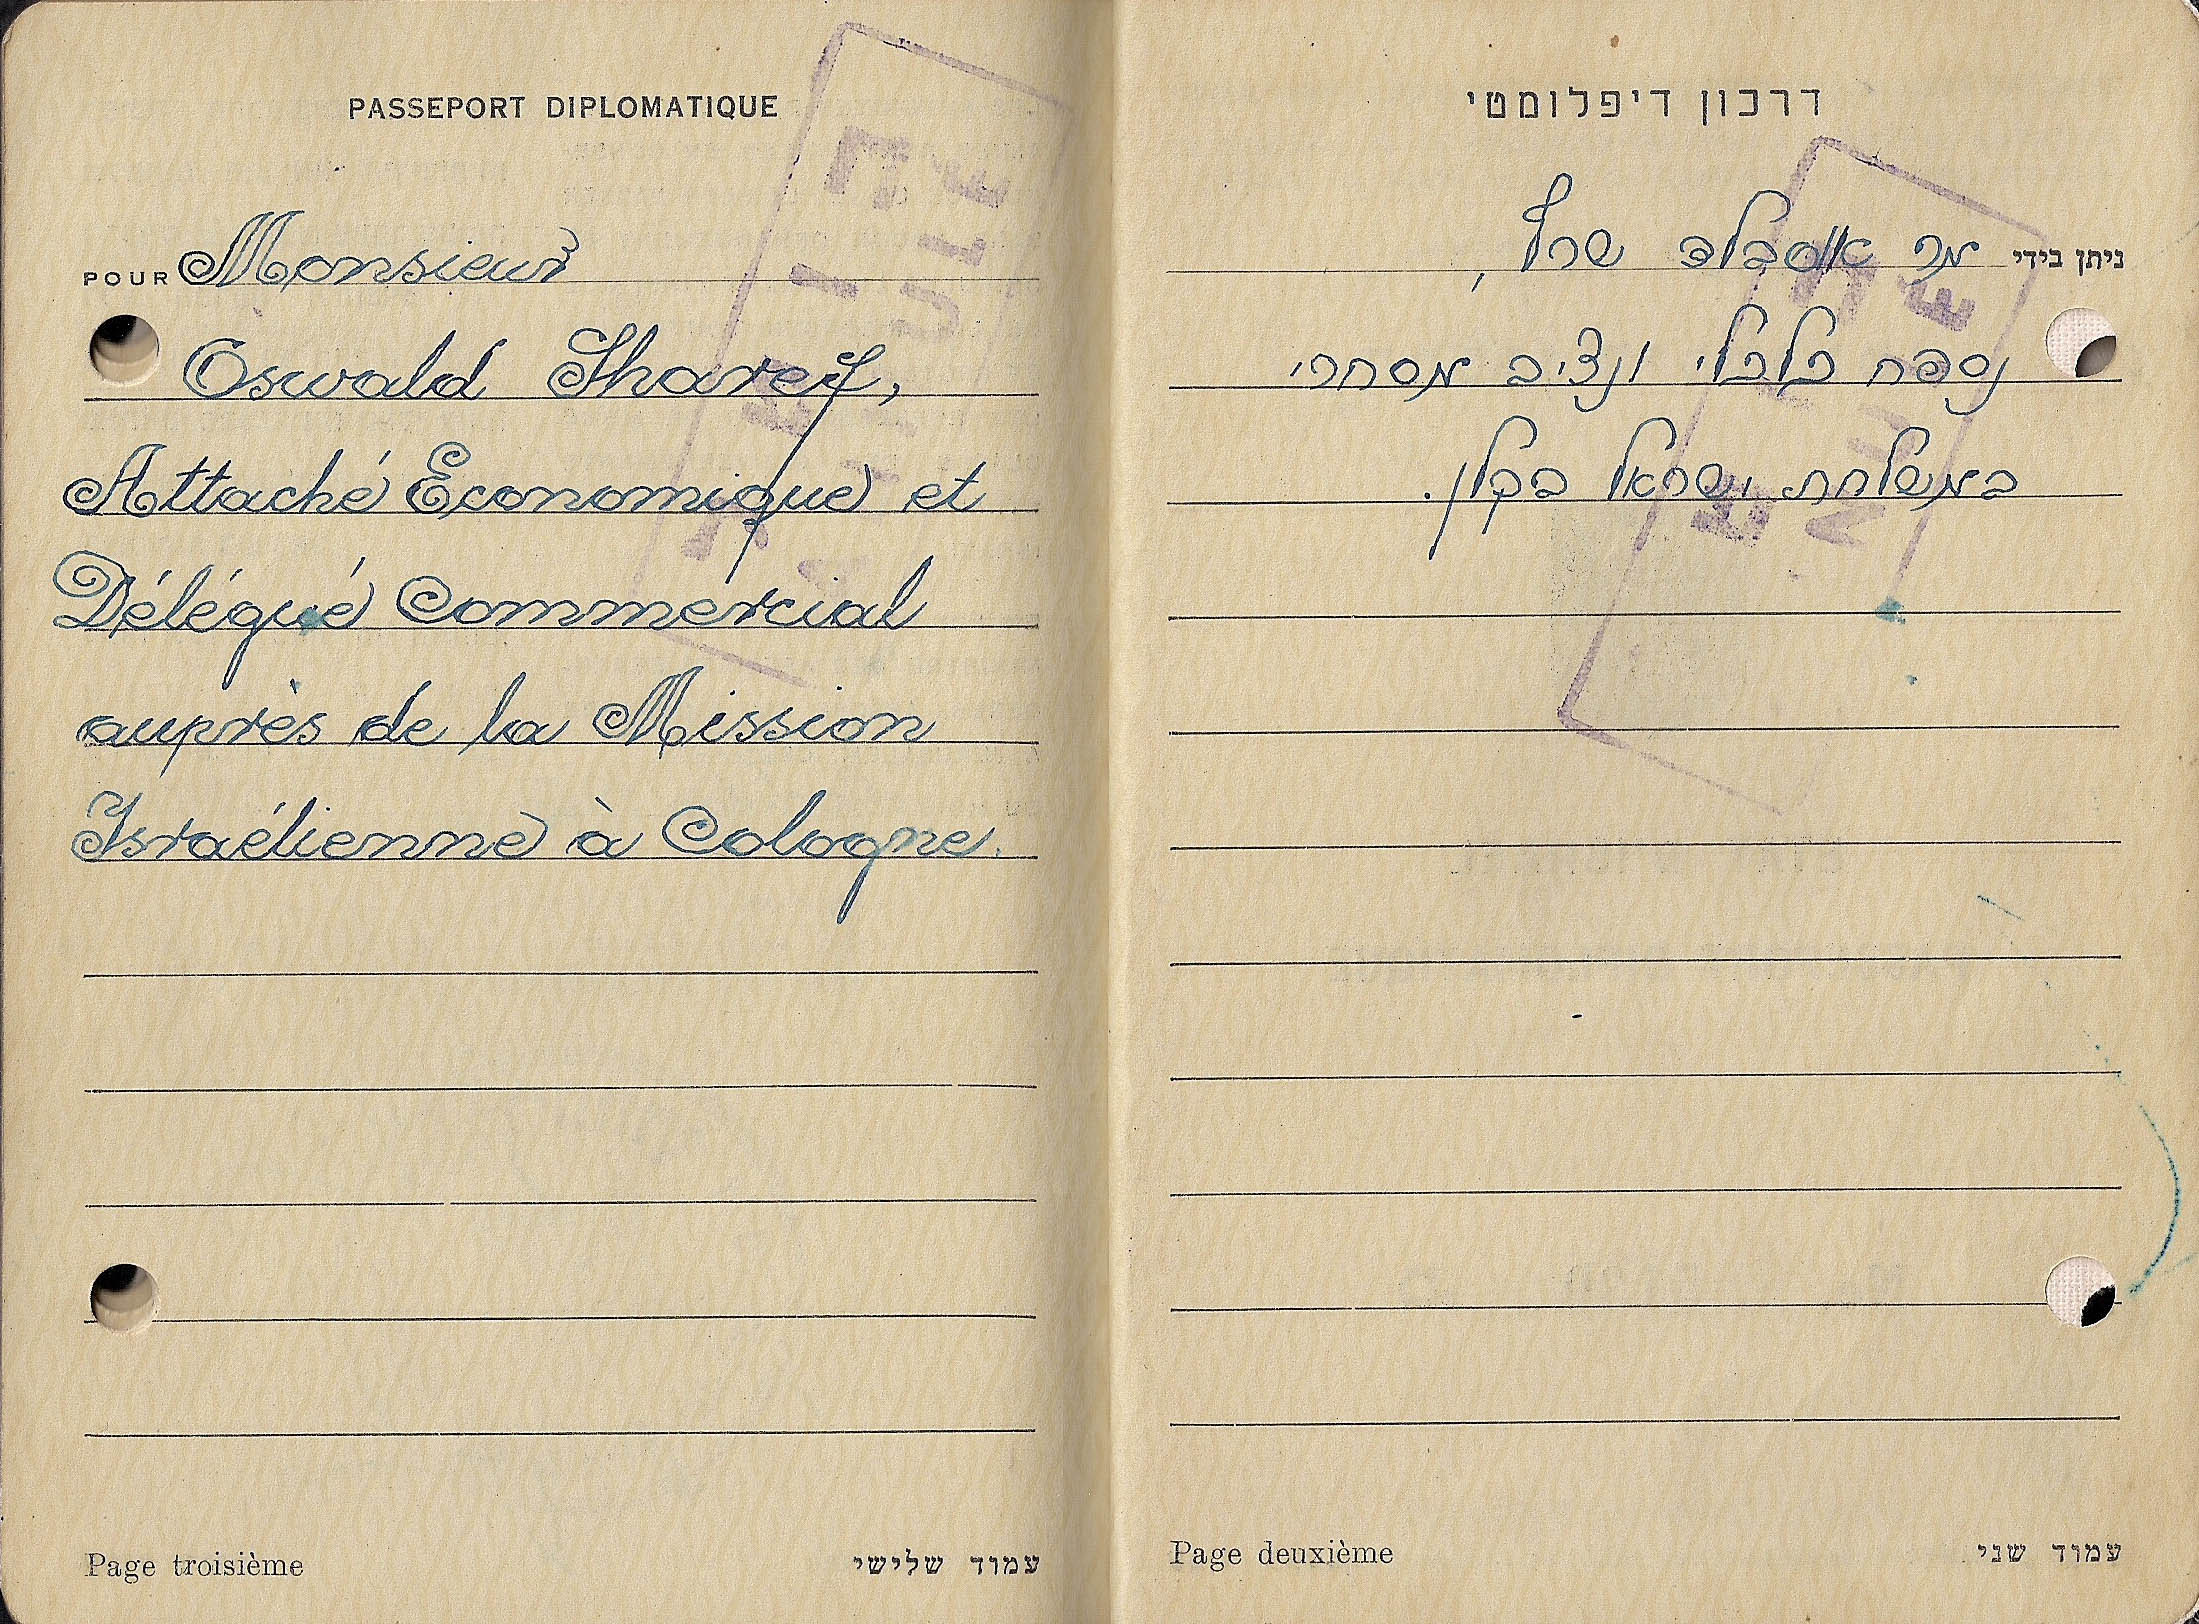 PASSEPORT DIPLOMATIQUE
POUR Monsieur
Oswald Sharef,
Attaché Economique et
Délégué Commercial
auprès de la Mission
Israélienne à Cologne.
Page troisième
עמוד שלישי
דרכון דיפלומטי
ניתן בידי מר אוסבלד שרף,
נספח כלכלי ונציב מסחרי
במשלחת ישראל בקלן.
Page deuxième
עמוד שני